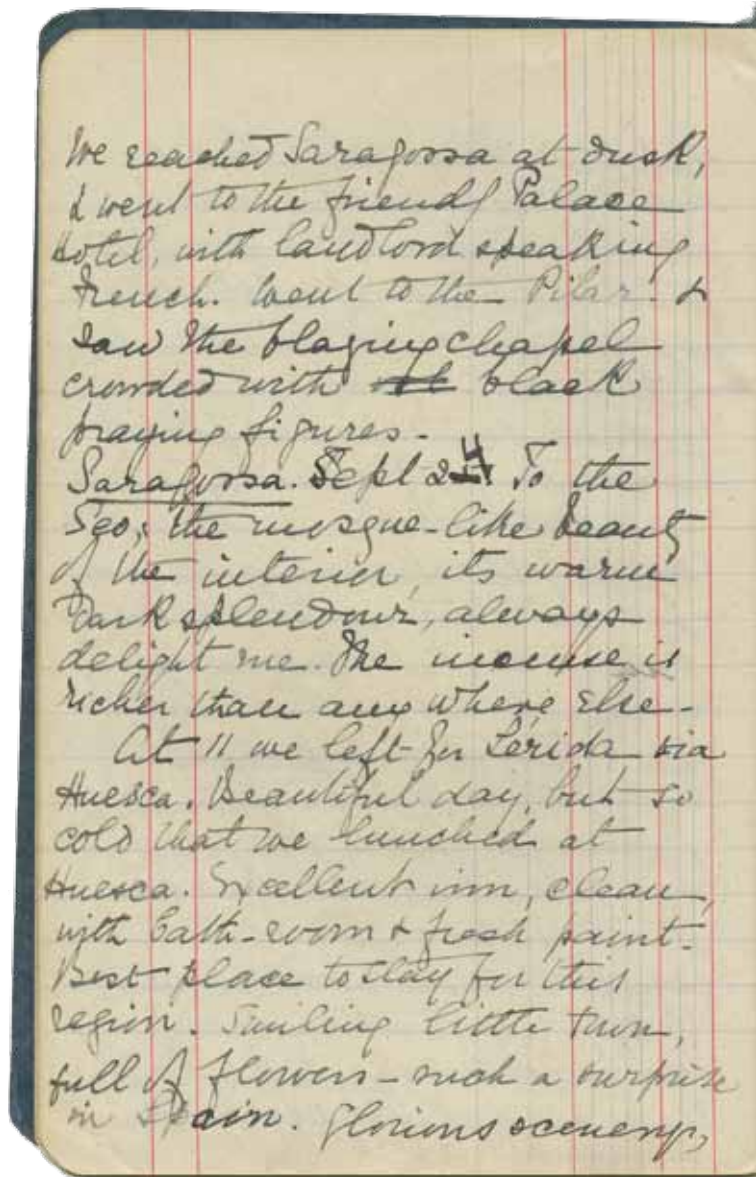 We reached Saragossa at dusk,
& went to the friendly Palace
Hotel, with landlord speaking
French. Went to the Pilar &
saw the blazing chapel
crowded with black
praying figures -
Saragossa. Sept 24 To the
Seo; the mosque-like beauty
of the interior, its warm
dark splendour, always
delight me. The incense is
richer than any where else -
At 11 we left for Lerida via
Huesca. Beautiful day, but so
cold that we lunched at
Huesca. Excellent inn, clean,
with bath-room & fresh paint.
Best place to stay for this
region. Smiling little town,
full of flowers - such a surprise
in Spain. Glorious scenery,